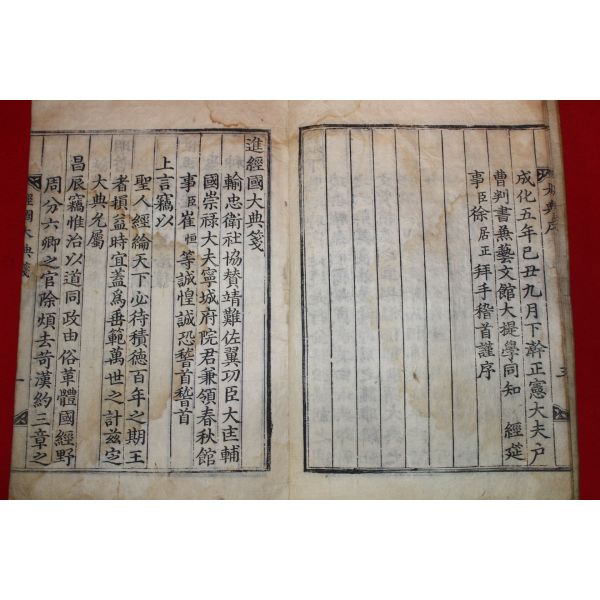 成化五年己丑九月下澣正憲大夫戶
曹判書兼藝文館大提學同知 經筵
事臣徐居正拜手稽首謹序
三
進經國大典箋
輸忠衛社協贊靖難佐翼功臣大匡輔
國崇祿大夫寧城府院君兼領春秋館
事臣崔恒等誠惶誠恐稽首稽首
上言竊以
聖人經綸天下必待積德百年之期王
者損益時宜蓋爲垂範萬世之計玆定
大典允屬
昌辰竊惟治以道同政由俗革體國經野
周分六卿之官除煩去苛漢約三章之
經國大典箋
一